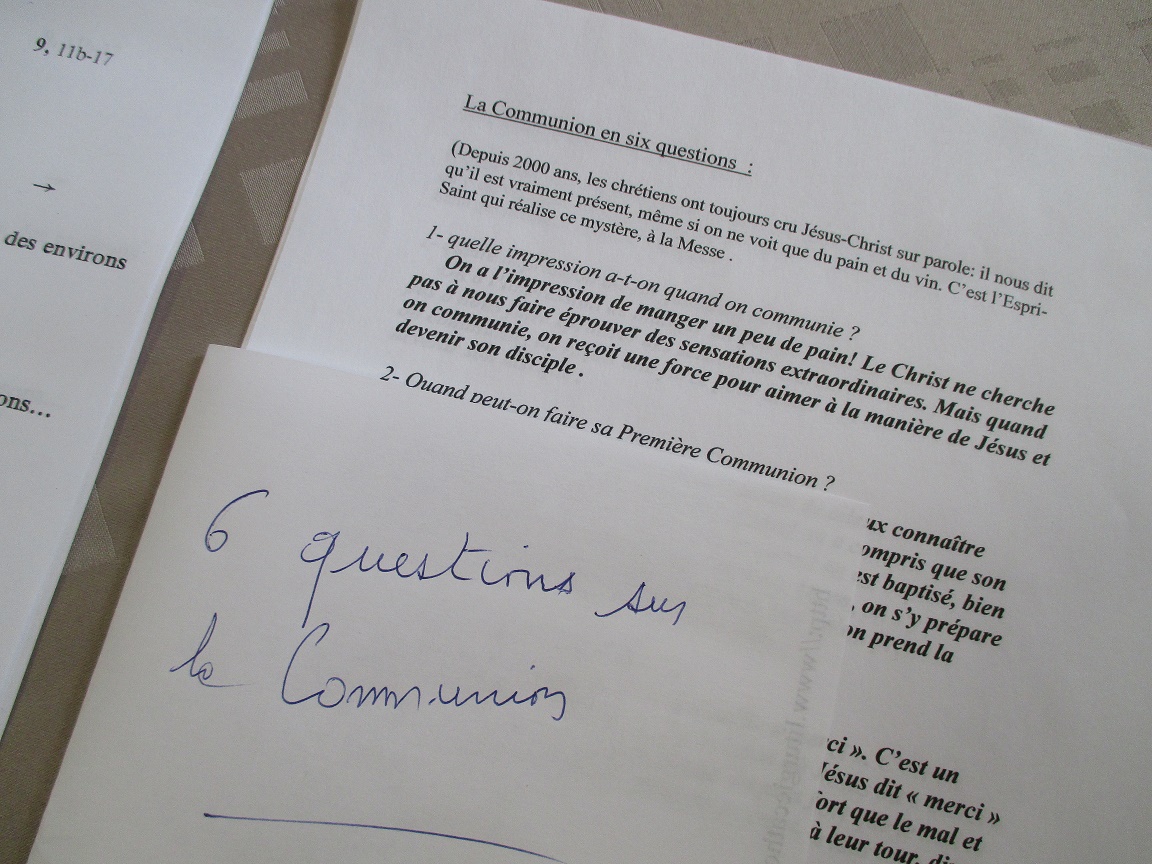 9, 11b-17
→
des environs
ons...
La Communion en six questions :
(Depuis 2000 ans, les chrétiens ont toujours cru Jésus-Christ sur parole: il nous dit
qu'il est vraiment présent, même si on ne voit que du pain et du vin. C'est l'Espri-
Saint qui réalise ce mystère, à la Messe .
1- quelle impression a-t-on quand on communie ?
On a l'impression de manger un peu de pain! Le Christ ne cherche
pas à nous faire éprouver des sensations extraordinaires. Mais quand
on communie, on reçoit une force pour aimer à la manière de Jésus et
devenir son disciple .
2- Quand peut-on faire sa Première Communion ?
ux connaître
ompris que son
est baptisé, bien
, on s'y prépare
on prend la
ci ». C'est un
Jésus dit « merci »
fort que le mal et
à leur tour, di
6 questions sur
la Communion